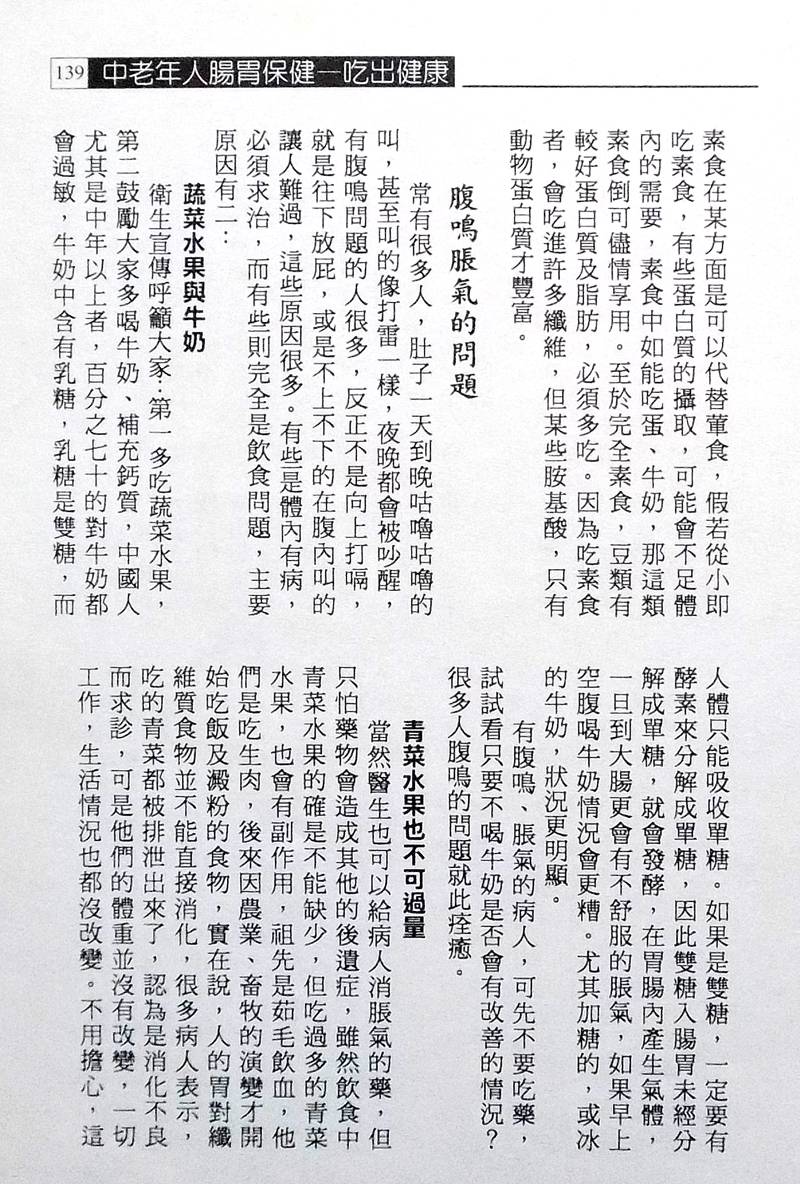 139 中老年人腸胃保健—吃出健康
素食在某方面是可以代替葷食，假若從小即
吃素食，有些蛋白質的攝取，可能會不足體
內的需要，素食中如能吃蛋、牛奶，那這類
素食倒可儘情享用。至於完全素食，豆類有
較好蛋白質及脂肪，必須多吃。因為吃素食
者，會吃進許多纖維，但某些胺基酸，只有
動物蛋白質才豐富。
腹鳴脹氣的問題
常有很多人，肚子一天到晚咕嚕咕嚕的
叫，甚至叫的像打雷一樣，夜晚都會被吵醒，
有腹鳴問題的人很多，反正不是向上打嗝，
就是往下放屁，或是不上不下的在腹內叫的
讓人難過，這些原因很多。有些是體內有病，
必須求治，而有些則完全是飲食問題，主要
原因有二：
蔬菜水果與牛奶
衛生宣傳呼籲大家：第一多吃蔬菜水果，
第二鼓勵大家多喝牛奶、補充鈣質，中國人
尤其是中年以上者，百分之七十的對牛奶都
會過敏，牛奶中含有乳糖，乳糖是雙糖，而
人體只能吸收單糖。如果是雙糖，一定要有
酵素來分解成單糖，因此雙糖入腸胃未經分
解成單糖，就會發酵，在胃腸內產生氣體，
一旦到大腸更會有不舒服的脹氣，如果早上
空腹喝牛奶情況會更糟。尤其加糖的，或冰
的牛奶，狀況更明顯。
有腹鳴、脹氣的病人，可先不要吃藥，
試試看只要不喝牛奶是否會有改善的情況？
很多人腹鳴的問題就此痊癒。
青菜水果也不可過量
當然醫生也可以給病人消脹氣的藥，但
只怕藥物會造成其他的後遺症，雖然飲食中
青菜水果的確是不能缺少，但吃過多的青菜
水果，也會有副作用，祖先是茹毛飲血，他
們是吃生肉，後來因農業、畜牧的演變才開
始吃飯及澱粉的食物，實在說，人的胃對纖
維質食物並不能直接消化，很多病人表示，
吃的青菜都被排泄出來了，認為是消化不良
而求診，可是他們的體重並沒有改變，一切
工作，生活情況也都沒改變。不用擔心，這